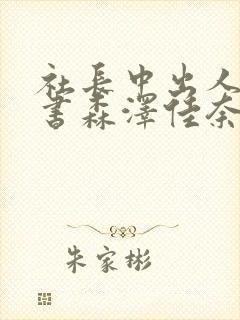 社長中出人
書森澤佳奈
朱家彬